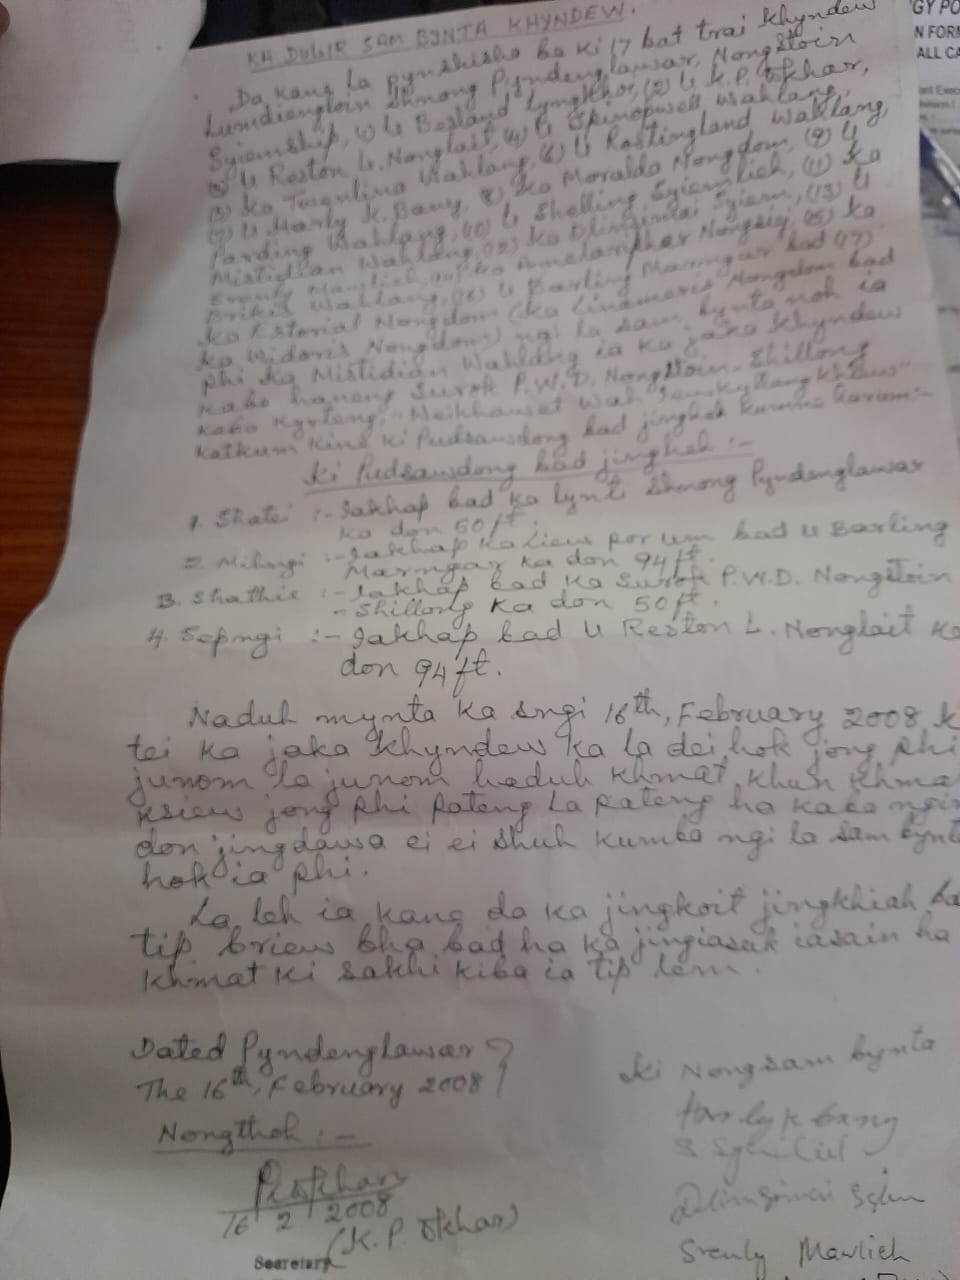 KA DULIR SAM BYNTA KHYNDEW.
GY PO
N FORM
ALL CA
Da kane la pynshisha ba ki 17 bat trai khyndew
Lumdiengloin Shnong Pyndenglawar, Nongstoin
Syiemship, (1) U Besland Lyngkhoi, (2) U K.P. Okhar,
(3) U Reston L. Nonglait, (4) U Spinopwell Wahlang,
(5) Ka Wahlang, (6) U Rastingland Wahlang,
(7) U Harly K. Bang, (8) Ka Moralda Nongdom, (9) U
Farding Wahlang, (10) U Shelling Syiemlieh, (11) Ka
Mistidian Wahlang, (12) Ka Dlingimai Syiem, (13) U
Srenly Mawlieh, Ka Nongsiej, (15) Ka
Brikis Wahlang, (16) U Barling Marngar bad (17)
Ka Estorial Nongdom (Ka Linamaris Nongdom bad
Ka Widoris Nongdom) ngi la sam bynta noh ia
phi Ka Mistidian Wahlang ia ka jaka khyndew
kaba hanong Surok P.W.D. Nongstoin - Shillong
kaba kyrteng
katkum kine ki Pudsawdong bad jingheh kumne harum:-
Ki Pudsawdong bad jingheh :-
1. Shatei :- Iakhap bad ka lynti Shnong Pyndenglawar
ka don 50 ft.
2. Mihngi :- Iakhap ka Liew por um bad U Barling
Marngar ka don 94 ft.
3. Shathie :- Iakhap bad ka Surok P.W.D. Nongstoin
- Shillong ka don 50 ft.
4. Sepngi :- Iakhap bad U Reston L. Nonglait ka
don 94 ft.
Naduh mynta ka sngi 16th, February 2008 k
tei ka jaka khyndew ka la dei hok jong phi
junom la junom haduh khmat khun khma
ksiew jong phi pateng la pateng ha kaba ngin
don jingdawa ei ei shuh kumba ngi la sam bynt
hok ia phi.
La leh ia kane da ka jingkoit jingkhiah ba
tip briew bha bad ha ka jingiasuk iasain ha
khmat ki sakhi kiba ia tip lem.
Dated Pyndenglawar
The 16th, February 2008
Ki Nongsam bynta
Harly K bang
Nongthoh :-
16 2 2008
(K. P. Okhar)
Secretary
Srenly Mawlieh